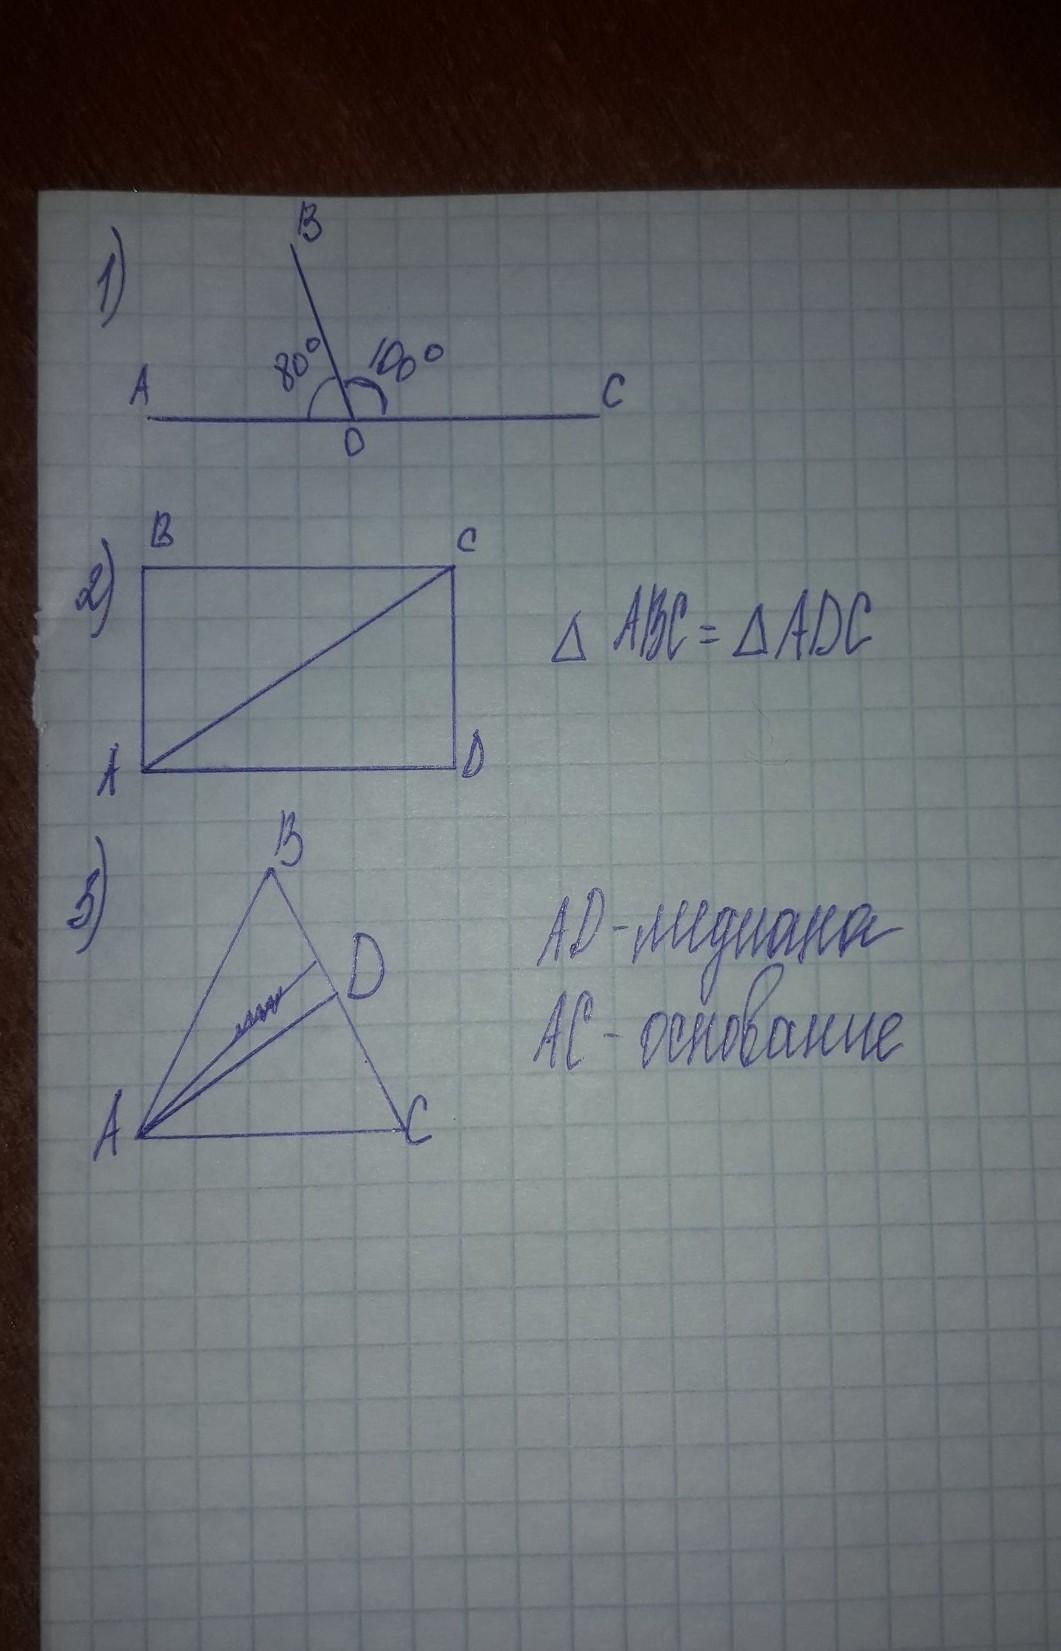 1)
B
80° 100°
A C
O
2)
B C
△ ABC = △ ADC
A D
3)
B
D
AD - медиана
AC - основание
A C